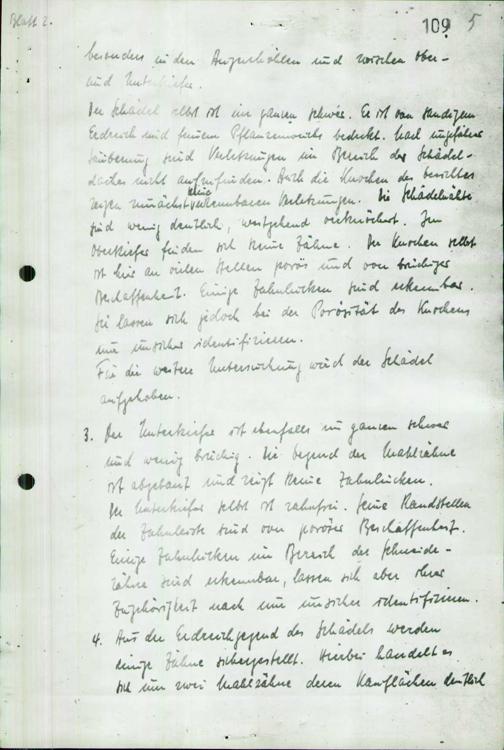 Blatt 2.
109 5
besonders in den Augenhöhlen und zwischen Ober-
und Unterkiefer.
Der Schädel selbst ist im ganzen schwer. Er ist von sandigem
Erdreich und feinem bedeckt. Nach ungefährer
Säuberung sind Verletzungen im Bereich des Schädel-
daches nicht aufzufinden. Auch die Knochen des Gesichtes
zeigen zunächst keine erkennbaren Verletzungen. Die Schädelnähte
sind wenig deutlich, weitgehend verknöchert. Im
Oberkiefer finden sich keine Zähne. Der Knochen selbst
ist hier an vielen Stellen porös und von brüchiger
Beschaffenheit. Einige Zahnlücken sind erkennbar.
Sie lassen sich jedoch bei der Porösität des Knochens
nur unsicher identifizieren.
Für die weitere Untersuchung wird der Schädel
aufgehoben.
3. Der Unterkiefer ist ebenfalls im ganzen schwer
und wenig brüchig. Die Gegend der Mahlzähne
ist abgebaut und zeigt keine Zahnlücken.
Der Unterkiefer selbst ist zahnfrei. Seine Randstellen
der Zahnleiste sind von poröser Beschaffenheit.
Einige Zahnlücken im Bereich der Schneide-
zähne sind erkennbar, lassen sich aber ihrer
Zugehörigkeit nach nur unsicher identifizieren.
4. Aus der Erdreichgegend des Schädels werden
einige Zähne sichergestellt. Hierbei handelt es
sich um zwei Mahlzähne deren Kauflächen deutlich